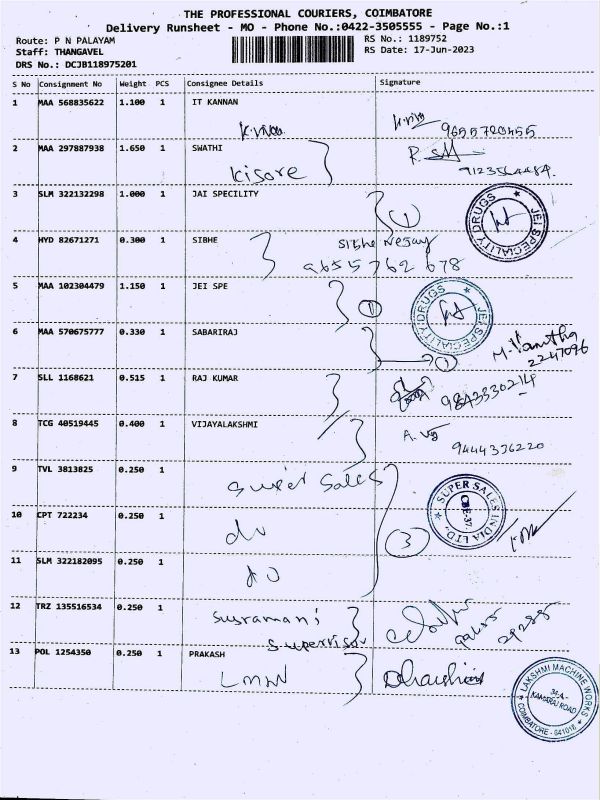 THE PROFESSIONAL COURIERS, COIMBATORE
Delivery Runsheet - MO - Phone No.:0422-3505555 - Page No.:1
Route: P N PALAYAM
RS No.: 1189752
Staff: THANGAVEL
RS Date: 17-Jun-2023
DRS No.: DCJB118975201
S No Consignment No Weight PCS Consignee Details Signature
1 MAA 568835622 1.100 1 IT KANNAN
9655720455
2 MAA 297887938 1.650 1 SWATHI
Kisore
3 SLM 322132298 1.000 1 JAI SPECILITY
1
JEI SPECIALITY DRUGS
4 HYD 82671271 0.300 1 SIBHE
Sibhe
9655762678
5 MAA 102304479 1.150 1 JEI SPE
1
JEI SPECIALITY DRUGS
6 MAA 570675777 0.330 1 SABARIRAJ
1
M. Vanitha
2247096
7 SLL 1168621 0.515 1 RAJ KUMAR
8 TCG 40519445 0.400 1 VIJAYALAKSHMI
9444336220
9 TVL 3813825 0.250 1
Super Sales
SUPER SALES INDIA LTD
CBE-37.
10 CPT 722234 0.250 1
do
3
11 SLM 322182095 0.250 1
do
12 TRZ 135516534 0.250 1
Susramani
Supervisor
13 POL 1254350 0.250 1 PRAKASH
LMW
LAKSHMI MACHINE WORKS
34-A-
KAMARAJ ROAD
COIMBATORE - 641018